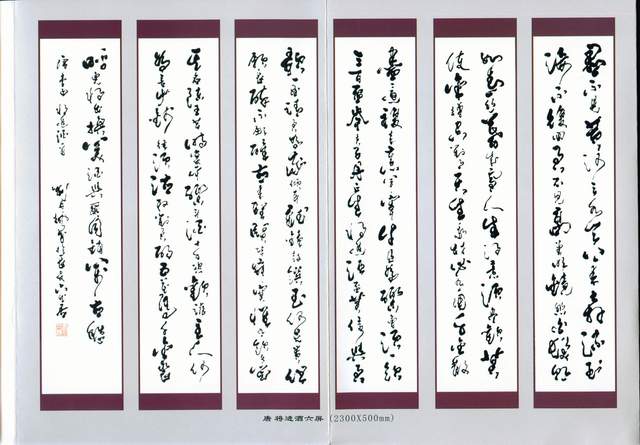 君不見黃河之水天上來奔流到
海不復回君不見高堂明鏡悲白髮朝
如青絲暮成雪人生得意須盡歡莫
使金樽空對月天生我材必有用千金散
盡還復來烹羊宰牛且為樂會須一飲
三百杯岑夫子丹丘生將進酒杯莫停與君
歌一曲請君為我傾耳聽鐘鼓饌玉何足貴但
願長醉不願醒古來聖賢皆寂寞惟有飲者留
其名陳王昔時宴平樂斗酒十千恣歡謔主人何
為言少錢徑須沽取對君酌五花馬千金裘
呼兒將出換美酒與爾同銷萬古愁
唐 将进酒六屏 (2300X500mm)